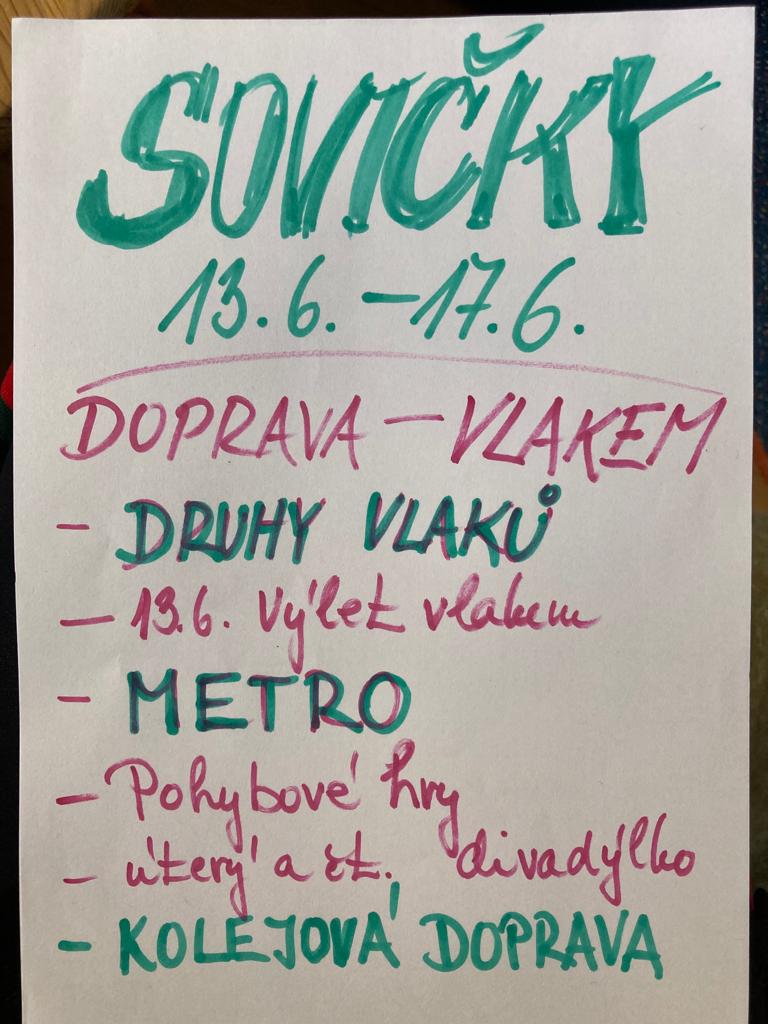 SOVIČKY
13.6. – 17.6.
DOPRAVA – VLAKEM
- DRUHY VLAKŮ
- 13.6. Výlet vlakem
- METRO
- Pohybové hry
- úterý a čt. divadýlko
- KOLEJOVÁ DOPRAVA